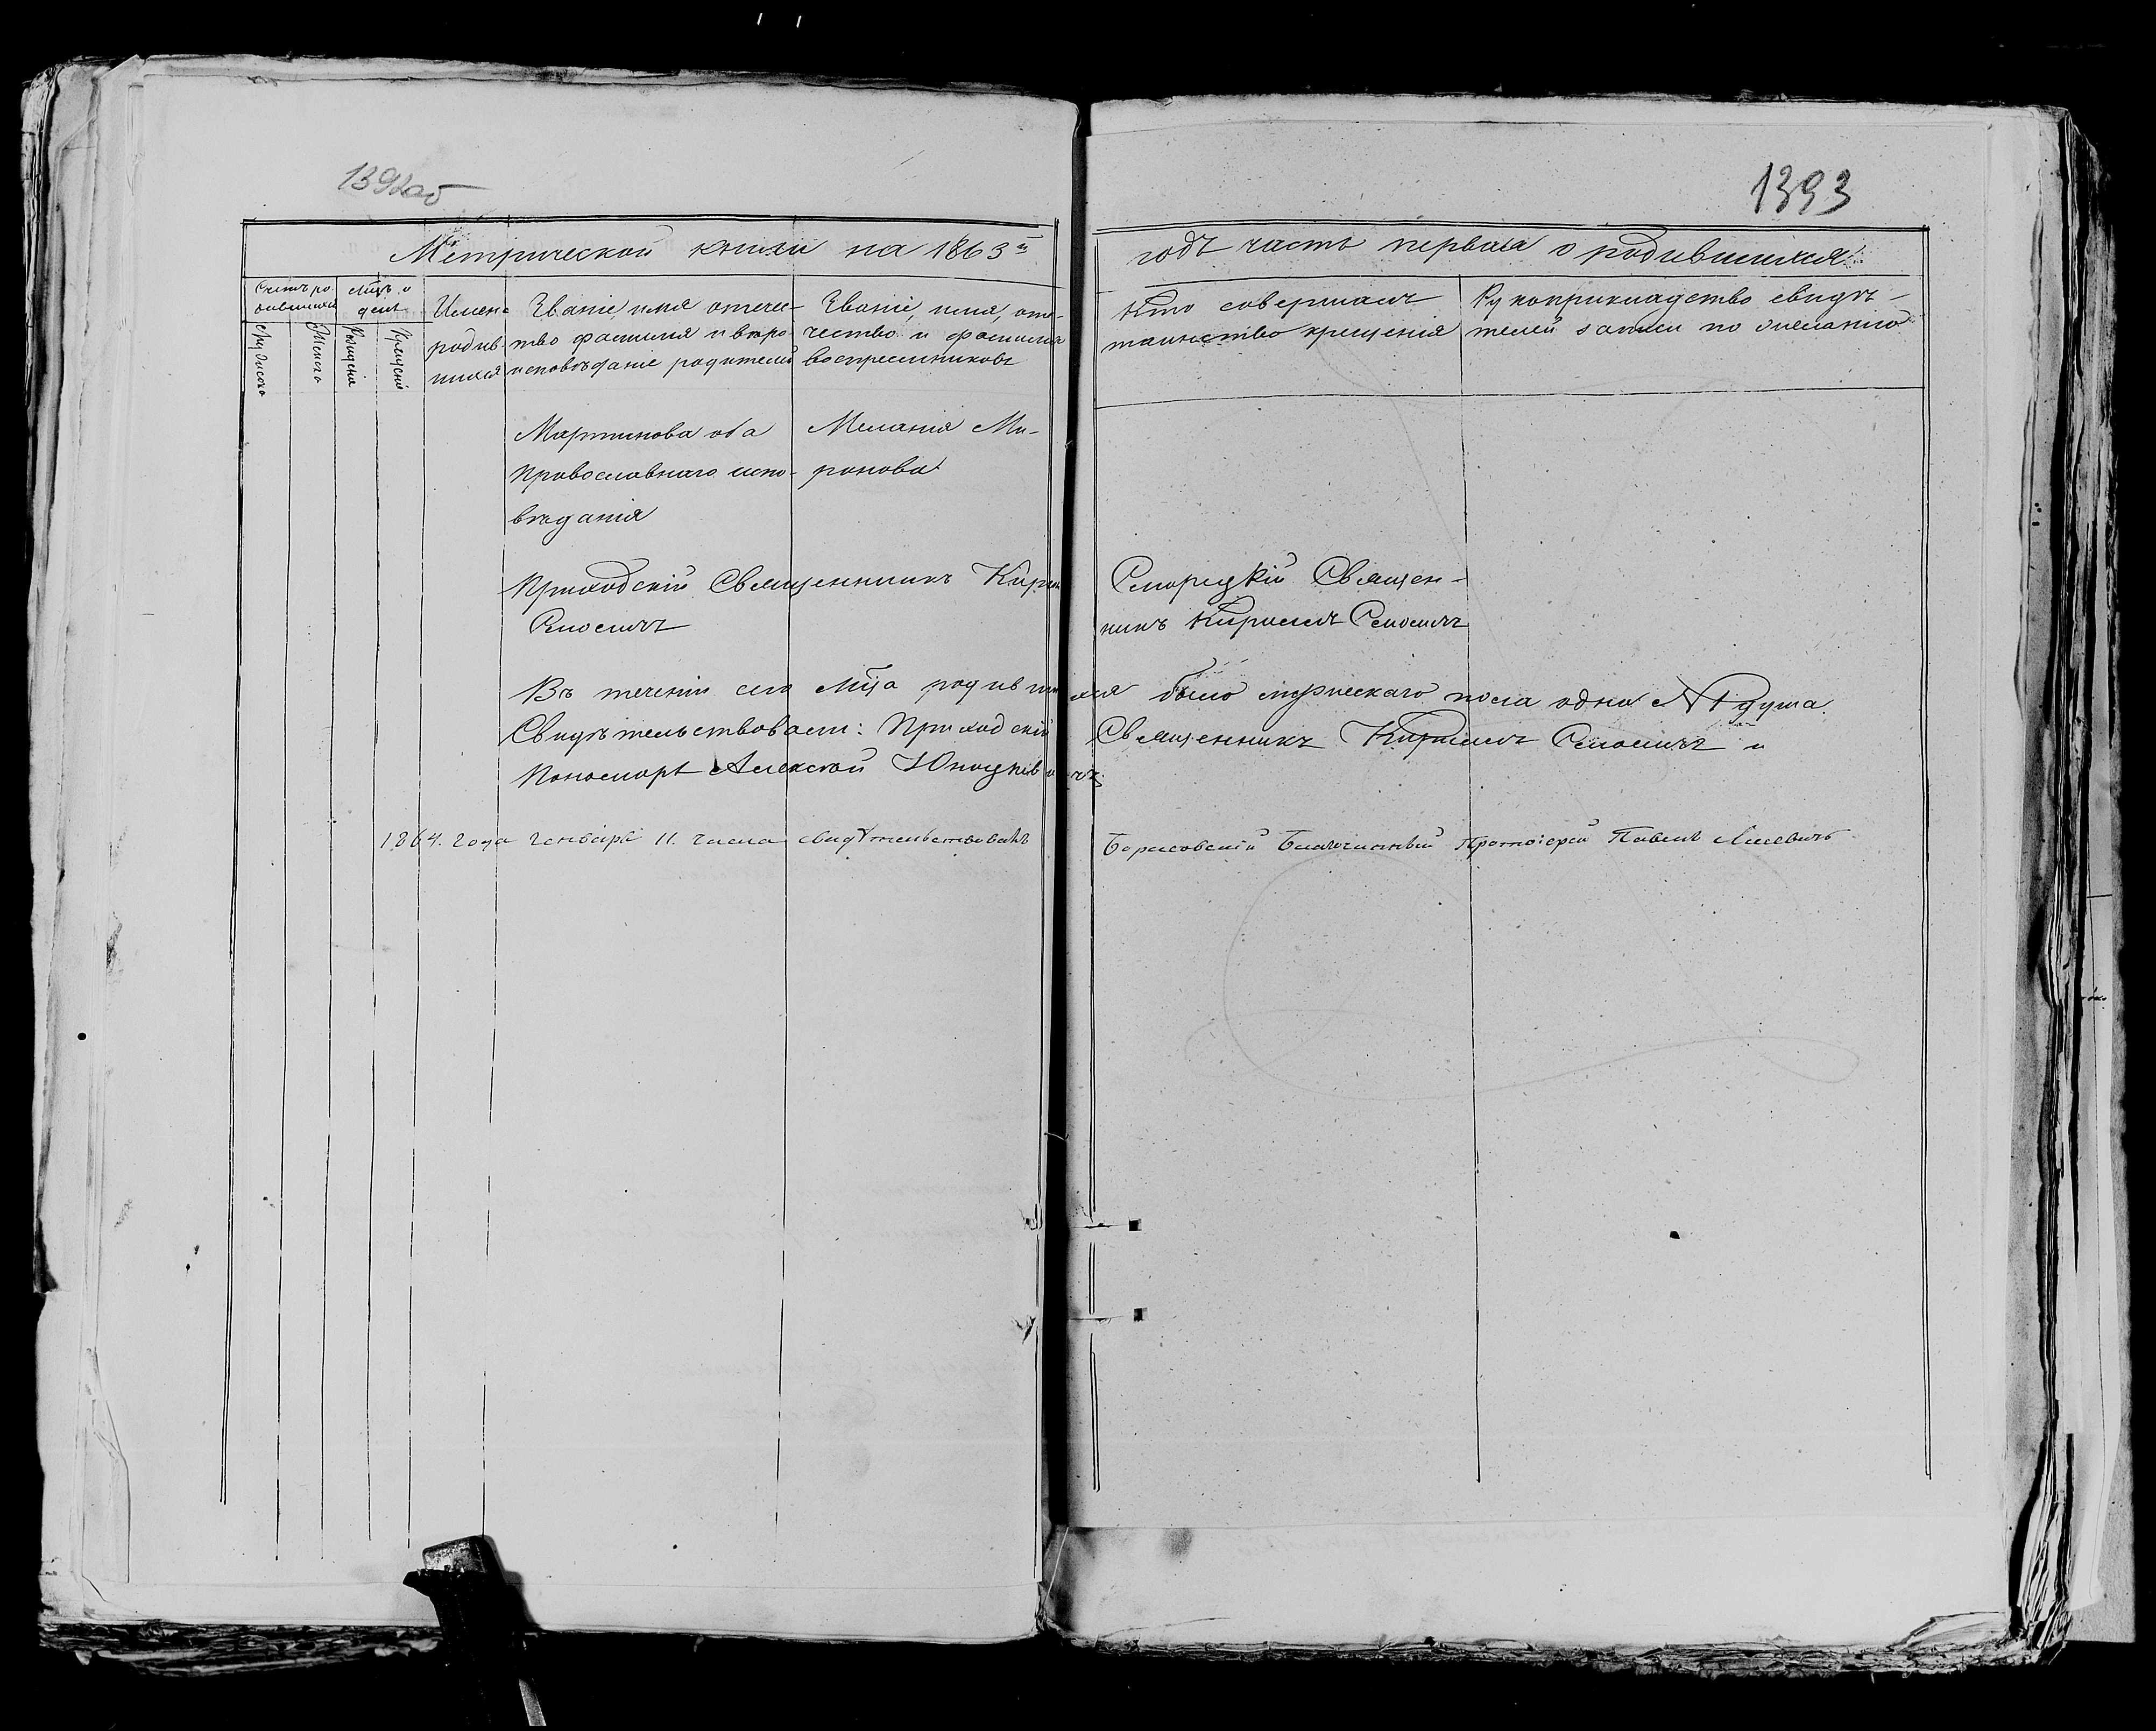 1392об
1393
Метрической книги на 1863й
годъ часть первая о родившихся.
Счетъ ро-
дившихся
Мцъ и
день
Мужеска
Женска
Рожденія
Крещенія
Имена
родив
шихся
Званіе имя отече-
тво фамилія и веро
исповѣданіе родителей
Званіе, имя, оте-
чество и фамилія
воспреемниковъ
Кто совершалъ
таинство крещенія
Рукоприкладство свидѣ-
телей записи по желанію
Мартинова оба
Православнаго испо-
вѣданія
Меланія Ми-
ронова
Приходскій Священникъ Кирил
Смоличъ
Священ-
никъ Кириллъ Смоличъ
Въ теченіи сего Мца родившихся было мужескаго пола одна № 1 душа
Свидѣтельствовали: Приходскій Священникъ Кириллъ Смоличъ и
Пономарь Алексѣй Юноцкевичъ
1864. года генваря 11. числа свидѣтельствовалъ Борисовскій Благочинный Протоіерей Павелъ